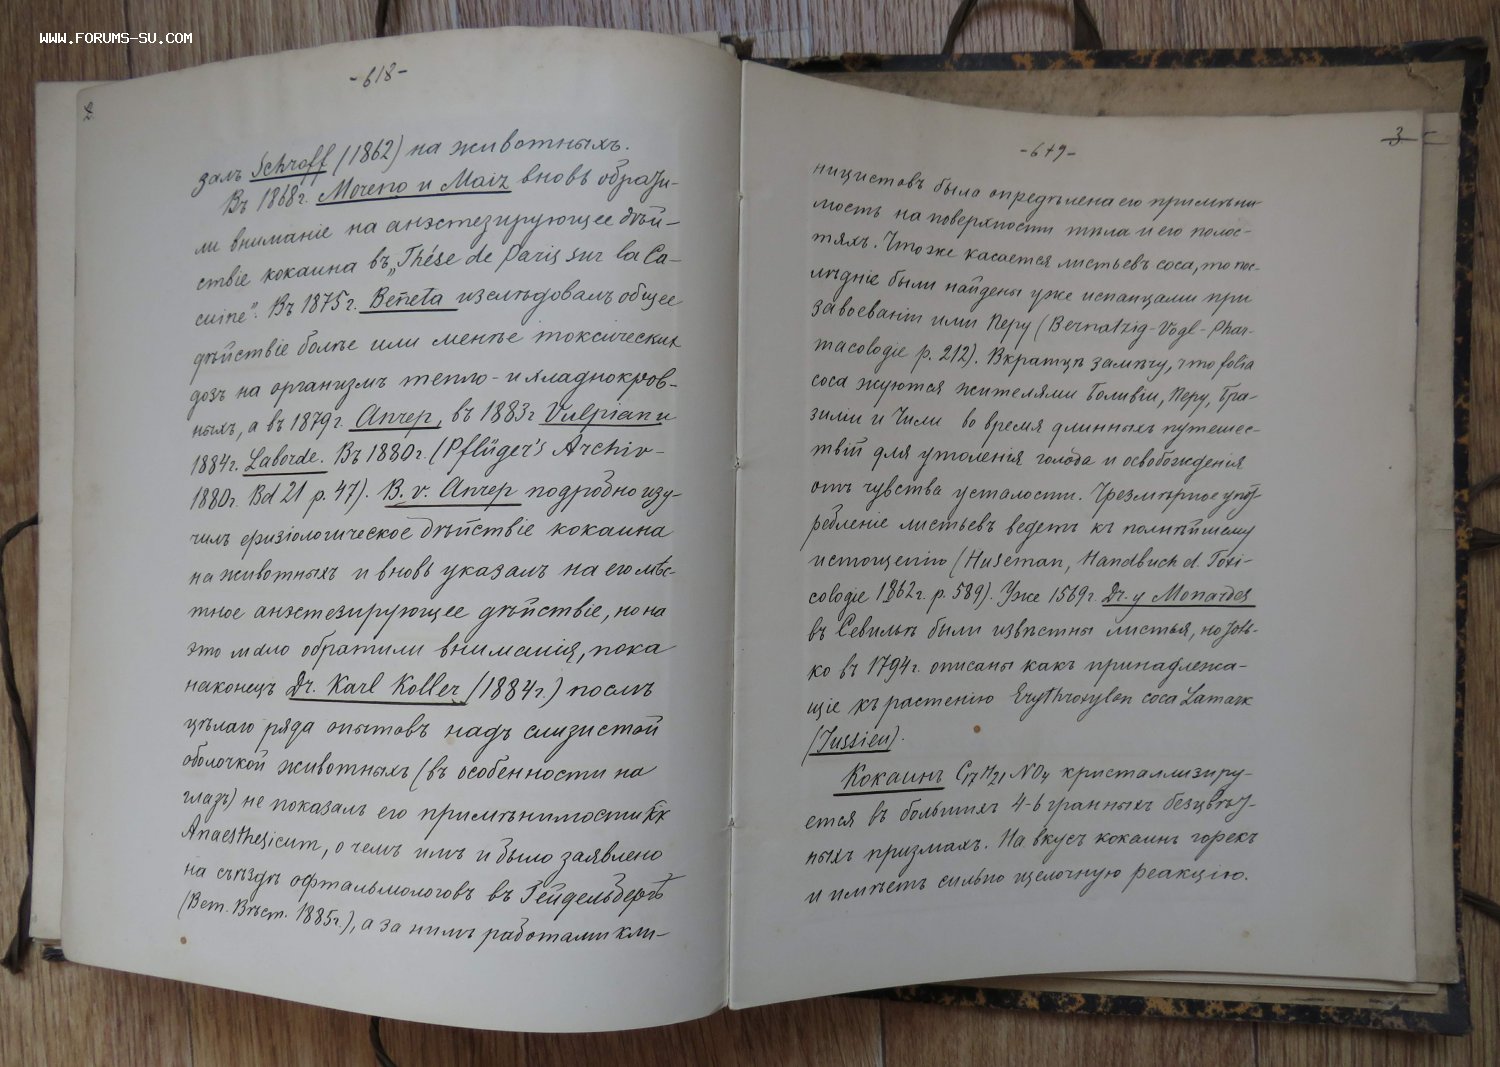 WWW.FORUMS-SU.COM
-618-
2
залъ Schroff (1862) на животныхъ.
Въ 1868г. Moreno и Maiz вновь обрати-
ли вниманіе на анэстезирующее дѣй-
ствіе кокаина въ „Thése de Paris sur la Ca-
cuine". Въ 1875г. Beñeta изслѣдовалъ общее
дѣйствіе болѣе или менѣе токсическихъ
дозъ на организмъ тепло- и хладнокров-
ныхъ, а въ 1879г. Anrep, въ 1883г Vulpian и
1884г. Laborde. Въ 1880г. (Pflüger's Archiv-
1880г. Bd 21 p. 47). B. v. Anrep подробно изу-
чилъ физіологическое дѣйствіе кокаина
на животныхъ и вновь указалъ на его мѣс-
тное анэстезирующее дѣйствіе, но на
это мало обратили вниманія, пока
наконецъ Dr. Karl Koller (1884г.) послѣ
цѣлаго ряда опытовъ надъ слизистой
оболочкой животныхъ (въ особенности на
глазъ) не показалъ его примѣнимости какъ
Anaesthesicum, о чемъ имъ и было заявлено
на съѣздѣ офтальмологовъ въ Гейдельбергѣ
(Вет. Вѣст. 1885г.), а за нимъ работами кли-
-619-
3
ницистовъ была опредѣлена его примѣни-
мость на поверхности тѣла и его полос-
тяхъ. Что же касается листьевъ coca, то пос-
лѣдніе были найдены уже испанцами при
завоеваніи ими Перу (Bernatzig-Vogl-Phar-
macologie p. 212). Вкратцѣ замѣчу, что folia
coca жуются жителями Боливіи, Перу, Бра-
зиліи и Чили во время длинныхъ путешес-
твій для утоленія голода и освобожденія
отъ чувства усталости. Чрезмѣрное упот-
ребленіе листьевъ ведетъ къ полнѣйшему
истощенію (Huseman, Handbuch d. Toxi-
cologie 1862г. p. 589). Уже 1569г. Dr. y Monardes
въ Севильѣ были извѣстны листья, но толь-
ко въ 1794г. описаны какъ принадлежа-
щіе къ растенію Erythroxylon coca Lamark
(Jussieu).
Кокаинъ C17 H21 NO4 кристаллизиру-
ется въ большихъ 4-6 гранныхъ безцвѣт-
ныхъ призмахъ. На вкусъ кокаинъ горекъ
и имѣетъ сильно щелочную реакцію.